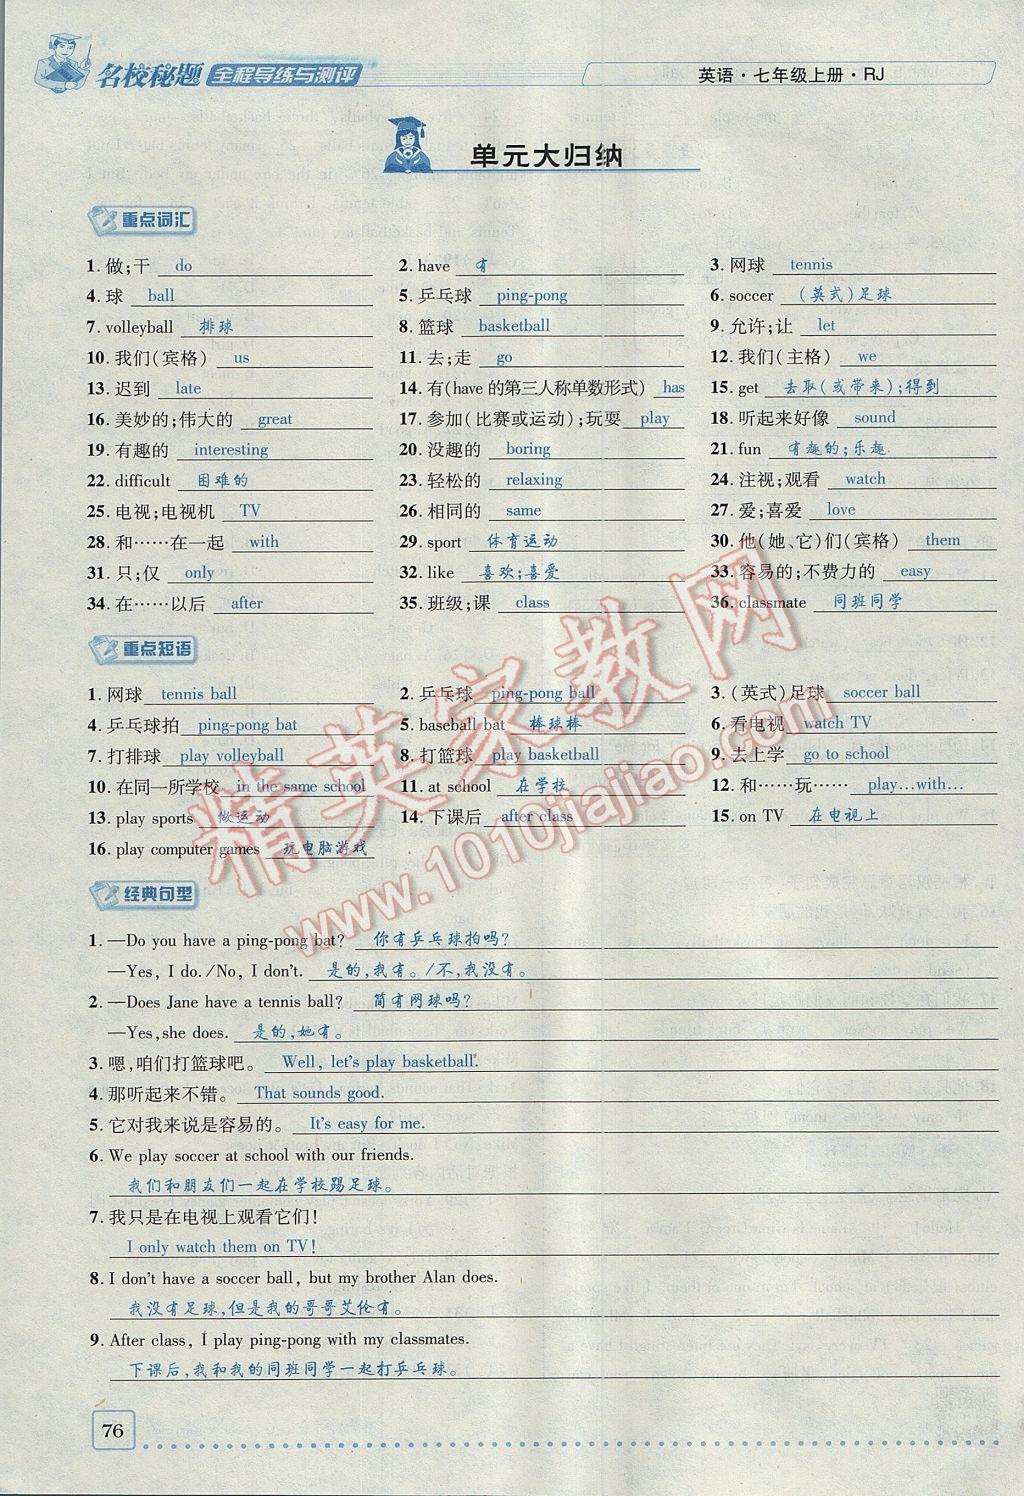 名校秘题 全程导练与测评
英语·七年级上册·RJ
单元大归纳
重点词汇
1. 做;干 do 2. have 有 3. 网球 tennis
4. 球 ball 5. 乒乓球 ping-pong 6. soccer (英式)足球
7. volleyball 排球 8. 篮球 basketball 9. 允许;让 let
10. 我们(宾格) us 11. 去;走 go 12. 我们(主格) we
13. 迟到 late 14. 有(have 的第三人称单数形式) has 15. get 去取(或带来);得到
16. 美妙的;伟大的 great 17. 参加(比赛或运动);玩耍 play 18. 听起来好像 sound
19. 有趣的 interesting 20. 没趣的 boring 21. fun 有趣的;乐趣
22. difficult 困难的 23. 轻松的 relaxing 24. 注视;观看 watch
25. 电视;电视机 TV 26. 相同的 same 27. 爱;喜爱 love
28. 和……在一起 with 29. sport 体育运动 30. 他(她、它)们(宾格) them
31. 只;仅 only 32. like 喜欢;喜爱 33. 容易的;不费力的 easy
34. 在……以后 after 35. 班级;课 class 36. classmate 同班同学
重点短语
1. 网球 tennis ball 2. 乒乓球 ping-pong ball 3. (英式)足球 soccer ball
4. 乒乓球拍 ping-pong bat 5. baseball bat 棒球棒 6. 看电视 watch TV
7. 打排球 play volleyball 8. 打篮球 play basketball 9. 去上学 go to school
10. 在同一所学校 in the same school 11. at school 在学校 12. 和……玩…… play…with…
13. play sports 做运动 14. 下课后 after class 15. on TV 在电视上
16. play computer games 玩电脑游戏
经典句型
1. —Do you have a ping-pong bat? 你有乒乓球拍吗?
—Yes, I do./No, I don't. 是的,我有。/不,我没有。
2. —Does Jane have a tennis ball? 简有网球吗?
—Yes,she does. 是的,她有。
3. 嗯,咱们打篮球吧。 Well, let's play basketball.
4. 那听起来不错。 That sounds good.
5. 它对我来说是容易的。 It's easy for me.
6. We play soccer at school with our friends.
我们和朋友们一起在学校踢足球。
7. 我只是在电视上观看它们!
I only watch them on TV!
8. I don't have a soccer ball, but my brother Alan does.
我没有足球,但是我的哥哥艾伦有。
9. After class, I play ping-pong with my classmates.
下课后,我和我的同班同学一起打乒乓球。
76
精英家教网
www.1010jiajiao.com